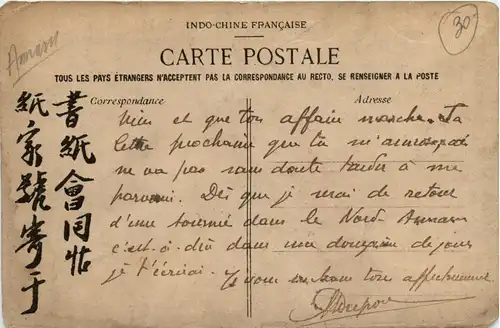 Annam
30
INDO-CHINE FRANÇAISE
CARTE POSTALE
TOUS LES PAYS ÉTRANGERS N'ACCEPTENT PAS LA CORRESPONDANCE AU RECTO, SE RENSEIGNER A LA POSTE
Correspondance
Adresse
書紙會同帖
紙家號寄于
et que ton affair marche. Ta
lettre prochaine que tu
ne va pas sans doute tarder à me
parvenir. Dès que je serai de retour
d'une tournée dans le Nord Annam
c'est-à-dire dans une douzaine de jours
je t'écrirai. Je vous ton affectionné